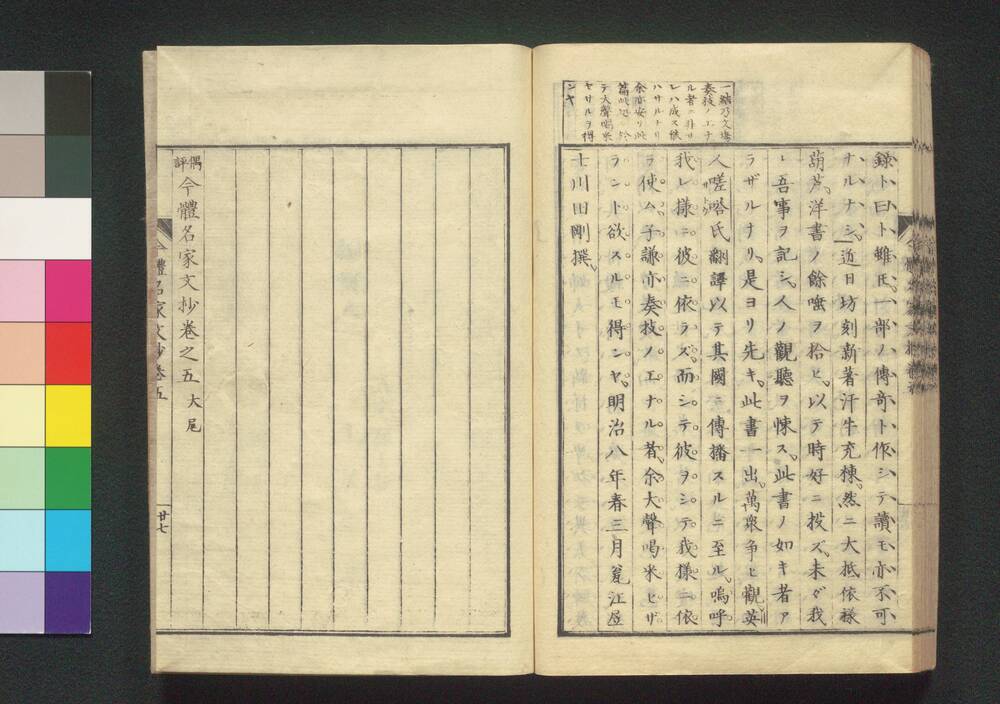 録ト曰ト雖𪜈一部ノ傳奇ト作シテ讀モ亦不可
ナルナシ近日坊刻新著汗牛充棟然ニ大抵依樣
葫芦洋書ノ餘唾ヲ拾ヒ以テ時好ニ投ズ未ダ我
吾事ヲ記シ人ノ觀聽ヲ悚ス此書ノ如キ者ア
ラザルナリ是ヨリ先キ此書一出萬衆争ヒ觀英
人嗟嗒氏翻譯以テ其國ニ傳播スルニ至ル嗚呼
我レ樣ニ彼ニ依ラズ而シテ彼ヲシテ我樣ニ依
ラ使ム子謙亦奏技ノエナル者余大聲喝米ヒザ
ラント欲スルモ得ンヤ明治八年春三月甕江居
士川田剛撰
一結乃文
ル者ニ非サ
レハ成ス
ハサルナリ
テ大聲喝米
セサルヲ得
ンヤ
偶評今體名家文抄卷之五 大尾
今體名家文抄卷五
廿七